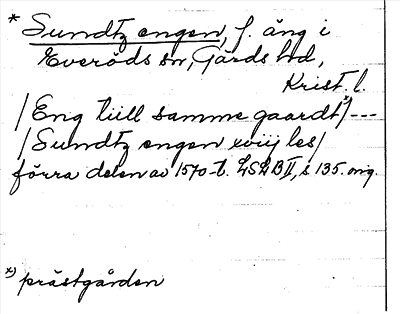 * Sundtz engen, f. äng i
Everöds sn, Gärds hd,
Krist. l.
/Eng till samme gaardt x)/---
/Sundtz engen xviij les/
förra delen av 1570-t. LSLB II, s 135. orig.
x) prästgården